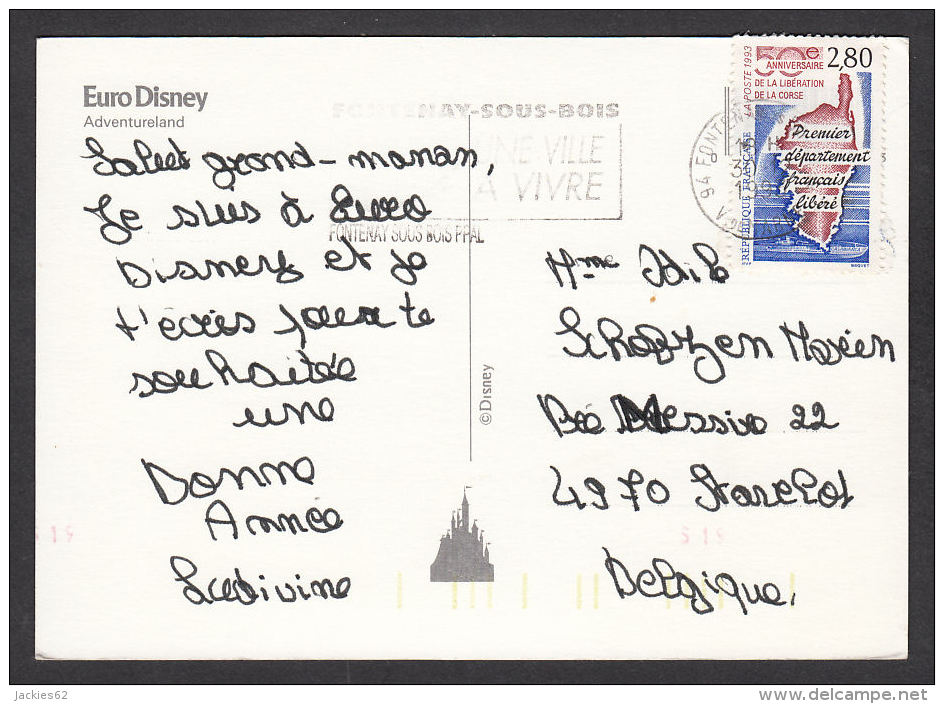 Euro Disney
Adventureland
FONTENAY-SOUS-BOIS
UNE VILLE
A VIVRE
FONTENAY SOUS BOIS PPAL
94 FONTENAY
50e
ANNIVERSAIRE
DE LA LIBÉRATION
DE LA CORSE
2,80
LA POSTE 1993
RÉPUBLIQUE FRANÇAISE
Premier
département
français
libéré
Salut grand-maman,
Je suis à Euro
Disney et je
t'écris pour te
souhaitée
une
Bonne
Année
Ludivine
©Disney
Mme
22
4970 Stavelot
Belgique,
S 19
S 19
jackies62
www.delcampe.net